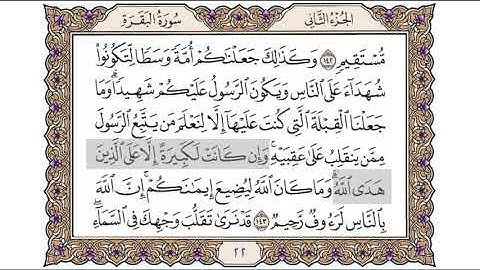 الجزء الثاني
سورة البقرة
مُّسْتَقِيمٍ ١٤٢ وَكَذَٰلِكَ جَعَلْنَاكُمْ أُمَّةً وَسَطًا لِّتَكُونُوا
شُهَدَاءَ عَلَى النَّاسِ وَيَكُونَ الرَّسُولُ عَلَيْكُمْ شَهِيدًا ۗ وَمَا
جَعَلْنَا الْقِبْلَةَ الَّتِي كُنتَ عَلَيْهَا إِلَّا لِنَعْلَمَ مَن يَتَّبِعُ الرَّسُولَ
مِمَّن يَنقَلِبُ عَلَىٰ عَقِبَيْهِ ۚ وَإِن كَانَتْ لَكَبِيرَةً إِلَّا عَلَى الَّذِينَ
هَدَى اللَّهُ ۗ وَمَا كَانَ اللَّهُ لِيُضِيعَ إِيمَانَكُمْ ۚ إِنَّ اللَّهَ
بِالنَّاسِ لَرَءُوفٌ رَّحِيمٌ ١٤٣ قَدْ نَرَىٰ تَقَلُّبَ وَجْهِكَ فِي السَّمَاءِ ۖ
٢٢